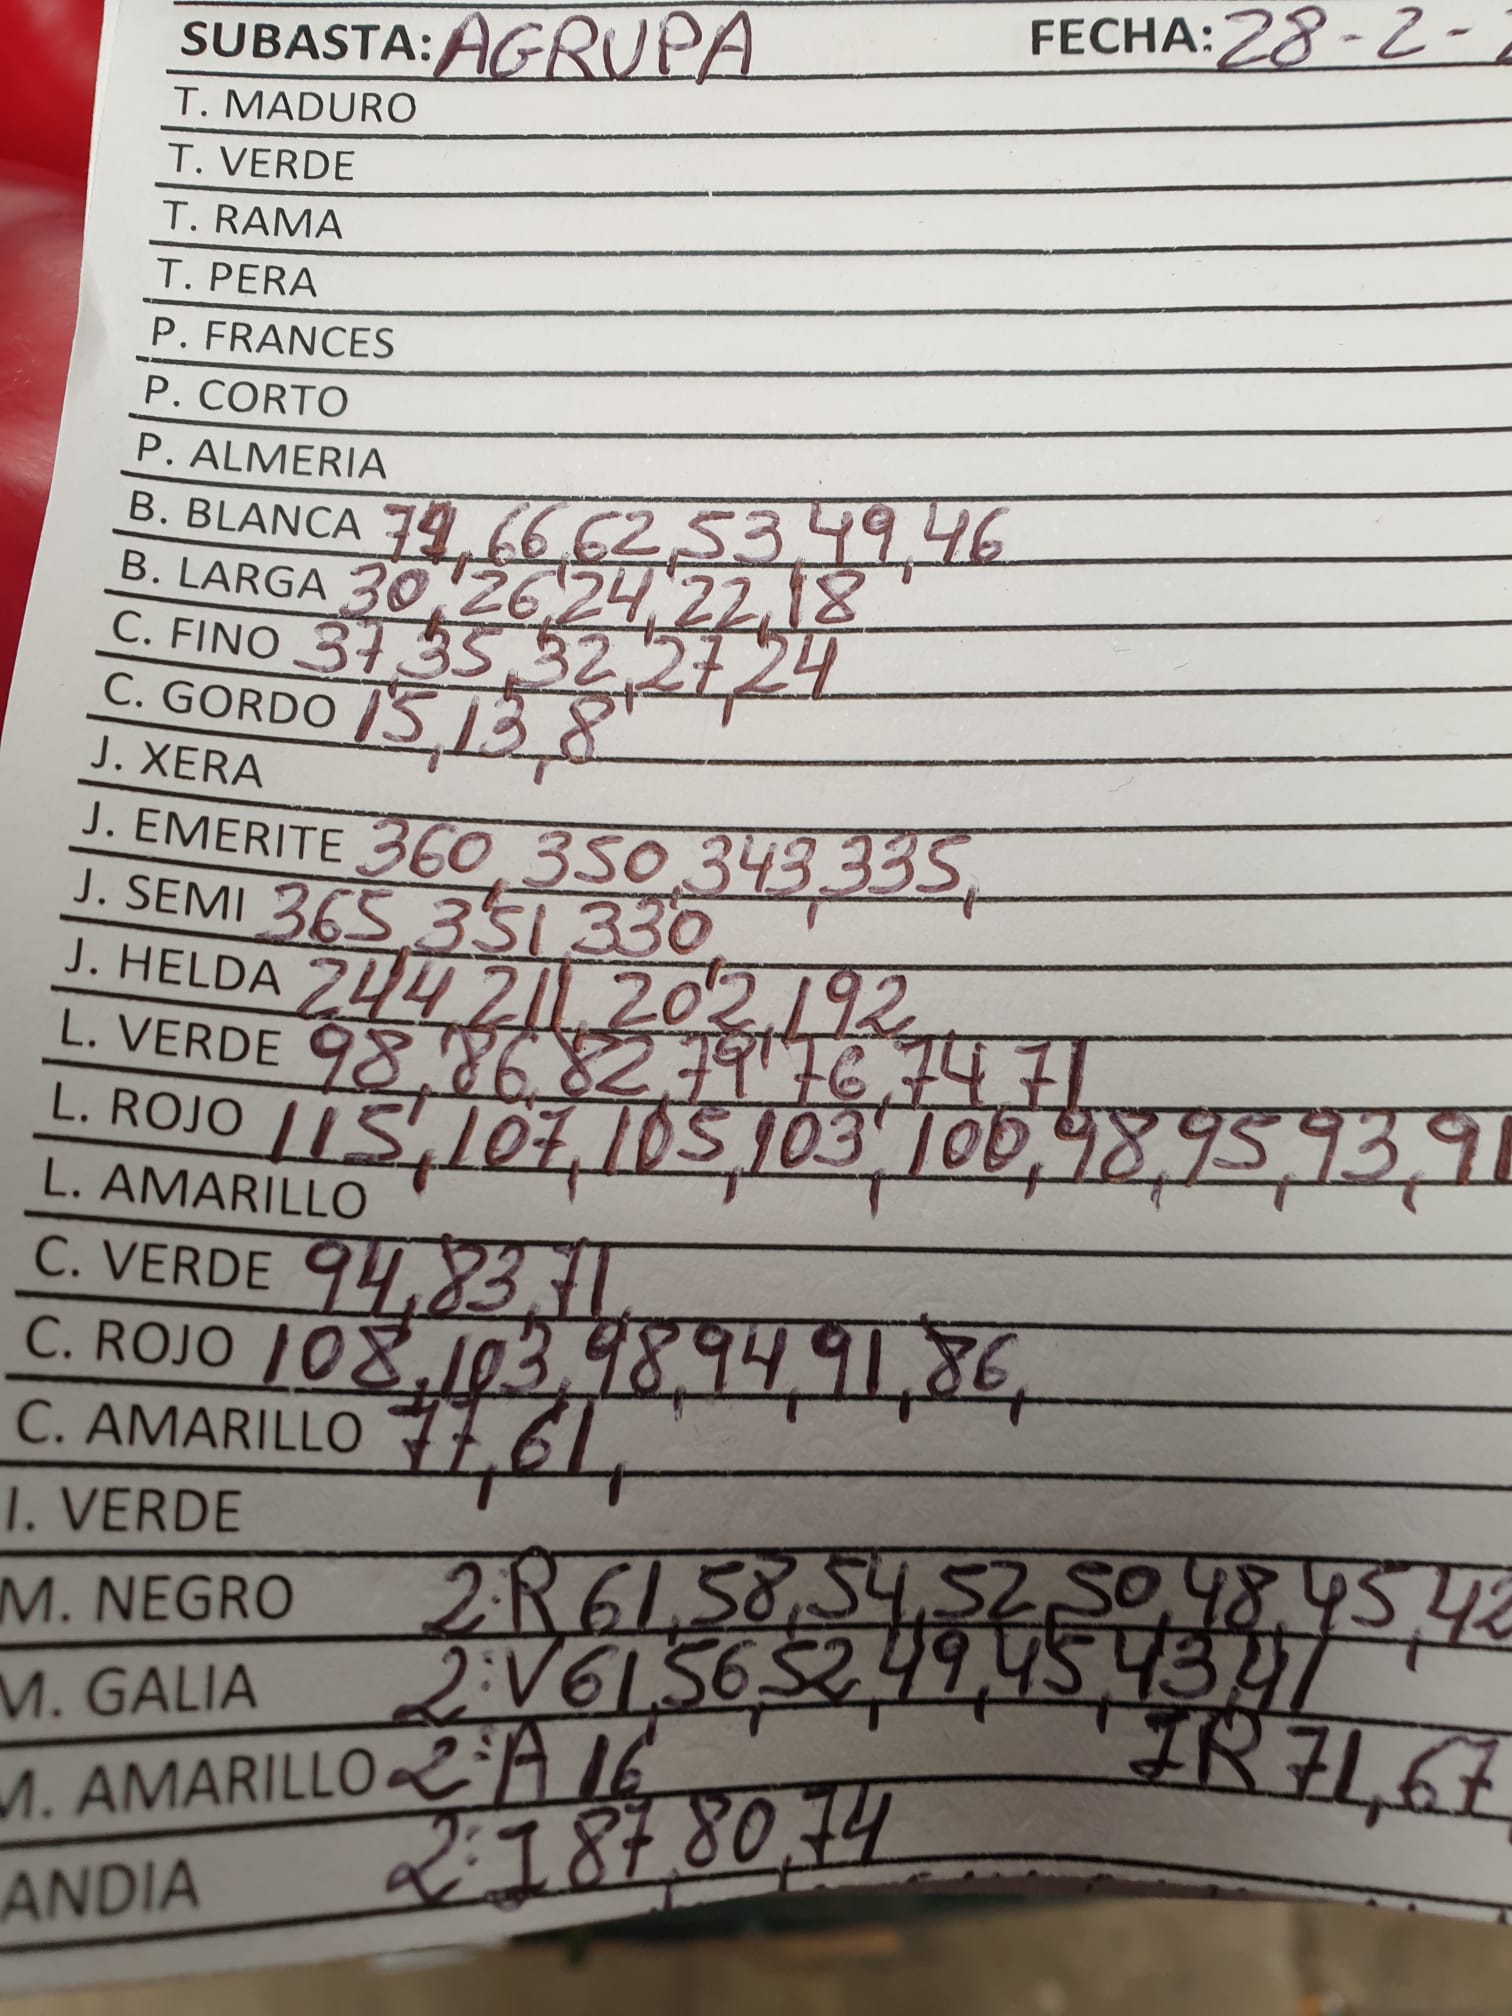 SUBASTA: AGRUPA FECHA: 28-2-
T. MADURO
T. VERDE
T. RAMA
T. PERA
P. FRANCES
P. CORTO
P. ALMERIA
B. BLANCA 66, 62, 53, 49, 46
B. LARGA 30, 26, 24, 22, 18
C. FINO 37, 35, 32, 27, 24
C. GORDO 15, 13, 8
J. XERA
J. EMERITE 360, 350, 343, 335,
J. SEMI 365, 351, 330,
J. HELDA 244, 211, 202, 192,
L. VERDE 98, 86, 82, 79, 76, 74, 71
L. ROJO 115, 107, 105, 103, 100, 98, 95, 93, 91
L. AMARILLO
C. VERDE 94, 83, 71,
C. ROJO 108, 103, 98, 94, 91, 86,
C. AMARILLO 77, 61,
I. VERDE
M. NEGRO 2:R 61, 58, 54, 52, 50, 48, 45, 42
M. GALIA 2:V 61, 56, 52, 49, 45, 43, 41
M. AMARILLO 2:A 16 IR 71, 67
ANDIA 2:I 87, 80, 74